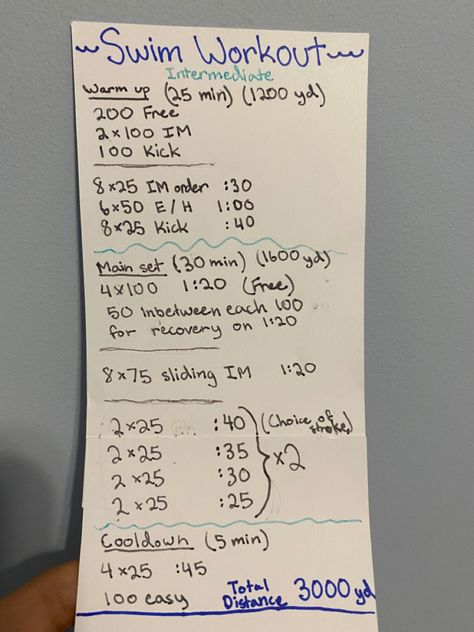 ~Swim Workout~
Intermediate
Warm up (25 min) (1200 yd)
200 Free
2x100 IM
100 Kick
8x25 IM order :30
6x50 E/H 1:00
8x25 Kick :40
Main set (30 min) (1600 yd)
4x100 1:20 (Free)
50 inbetween each 100
for recovery on 1:20
8x75 sliding IM 1:20
2x25 :40 (Choice of stroke)
2x25 :35
2x25 :30
2x25 :25
x2
Cooldown (5 min)
4x25 :45
100 easy
Total Distance 3000 yd